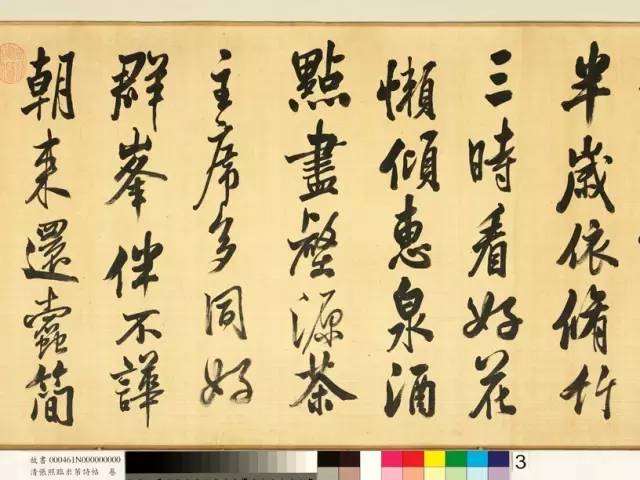 半歲依脩竹
三時看好花
懶傾惠泉酒
點盡壑源茶
主席多同好
群峯伴不譁
朝來還蠹簡
故書000461N000000000
清張照臨米芾詩帖 卷
3